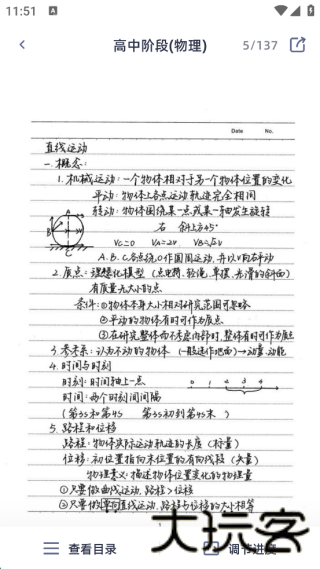 11:51
高中阶段(物理)
5/137
Date No.
直线运动
一.概念:
1.机械运动:一个物体相对于另一个物体位置的变化
平动:物体上各点运动轨迹完全相同
转动:物体围绕某一点或某一轴发生旋转
A
B
C
右 斜上方45°
Vc=0 VA=2V VB=√2V
A.B.C各点绕O作圆周运动,并以V向右平动
2.质点:理想化模型(点电荷、轻绳、单摆、光滑的斜面)
有质量无大小的点.
条件:①物体本身大小相对研究范围可忽略
②平动的物体有时可作为质点
③在研究整体而不考虑内部时,整体有时可作为质点
3.参考系:认为不动的物体(一般选作地面)→动量.动能
4.时间与时刻
时刻:时间轴上一点
0 1 2 3 4
时间:两个时刻间间隔
(第3S和第4S 第3S初到第4S末)
5.路程和位移
路程:物体实际运动轨迹的长度(标量)
位移:初位置指向末位置的有向线段(矢量)
物理意义:描述物体位置变化的物理量
①只要做曲线运动,路程>位移
②只要做单向直线运动,路程与位移的大小相等
查看目录
调节进度
大玩客